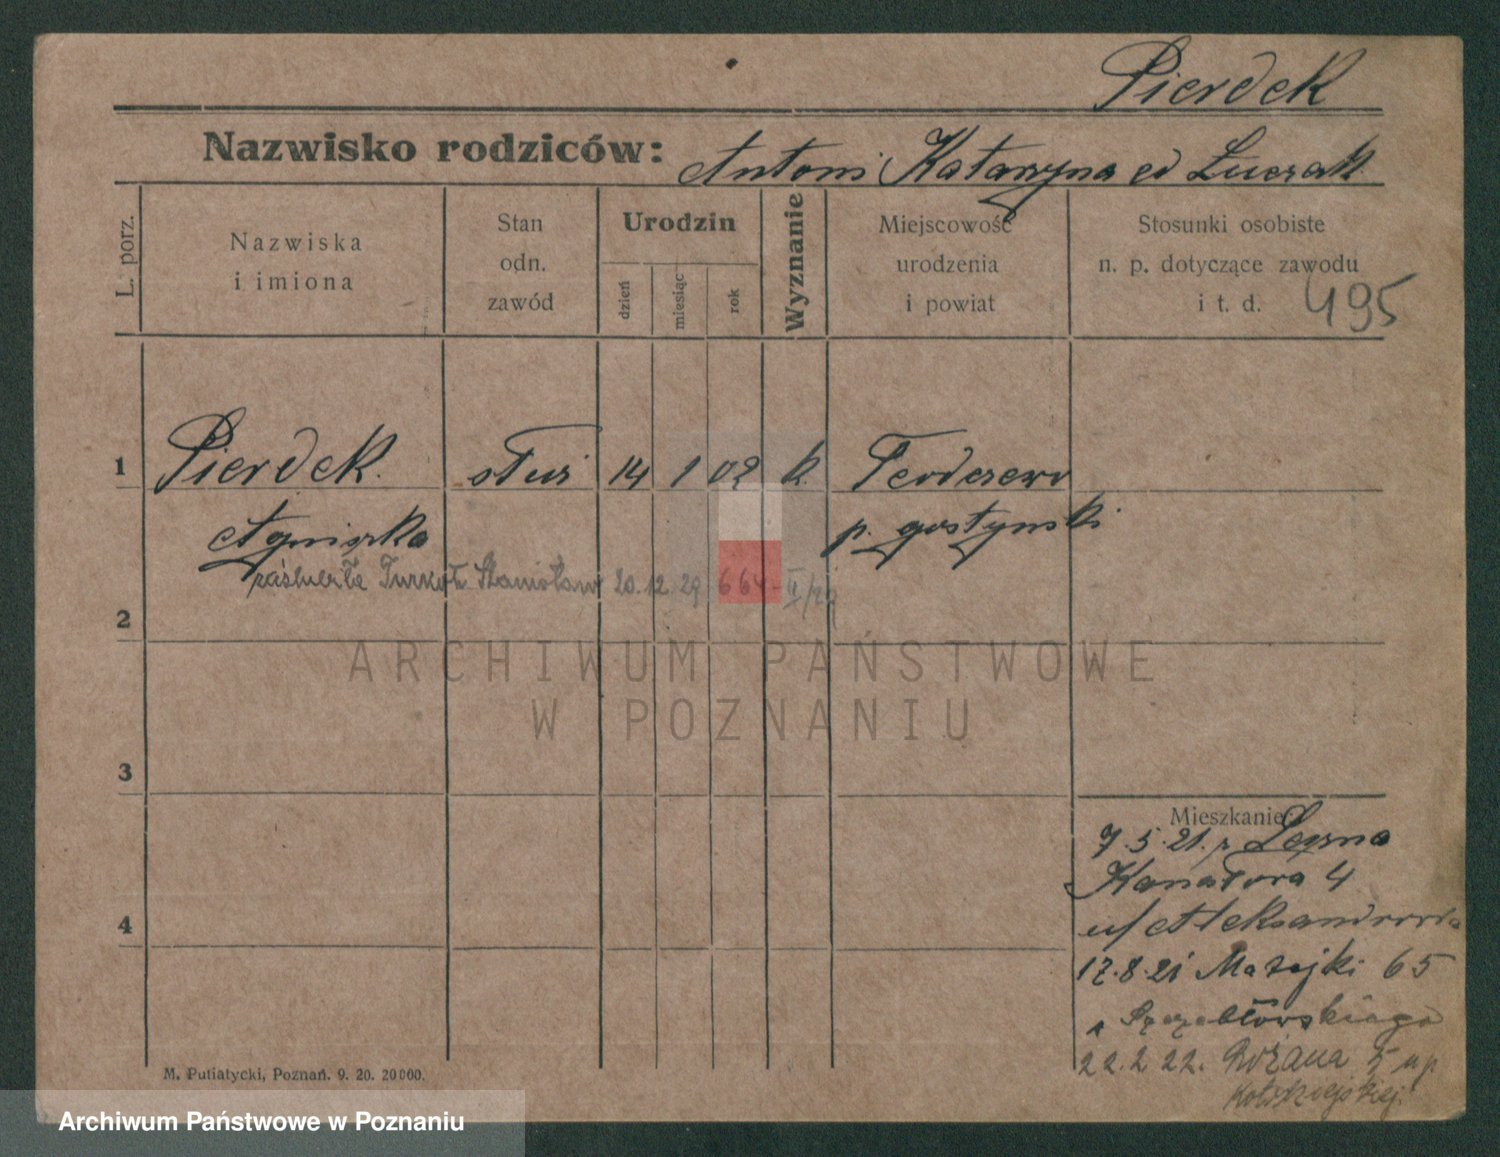 Pierdek
Nazwisko rodziców: Antoni Katarzyna cd Luczak
L. porz.
Nazwiska
i imiona
Stan
odn.
zawód
Urodzin
dzień
miesiąc
rok
Wyznanie
Miejscowość
urodzenia
i powiat
Stosunki osobiste
n. p. dotyczące zawodu
i t. d.
495
1 Pierdek służ 14 1 02 k. Teodozewo
Agnieszka p. gostynski
zaślubiła Turkot Stanisław 20.12.29 664-II/29
2
ARCHIWUM PAŃSTWOWE
W POZNANIU
3
Mieszkanie:
7.5.21. Leszna
Kanałowa 4
4
u/ Aleksandrowicza
17.8.21 Matejki 65
22.2.22. Różana 5
M. Putiatycki, Poznań. 9. 20. 20000.
Archiwum Państwowe w Poznaniu